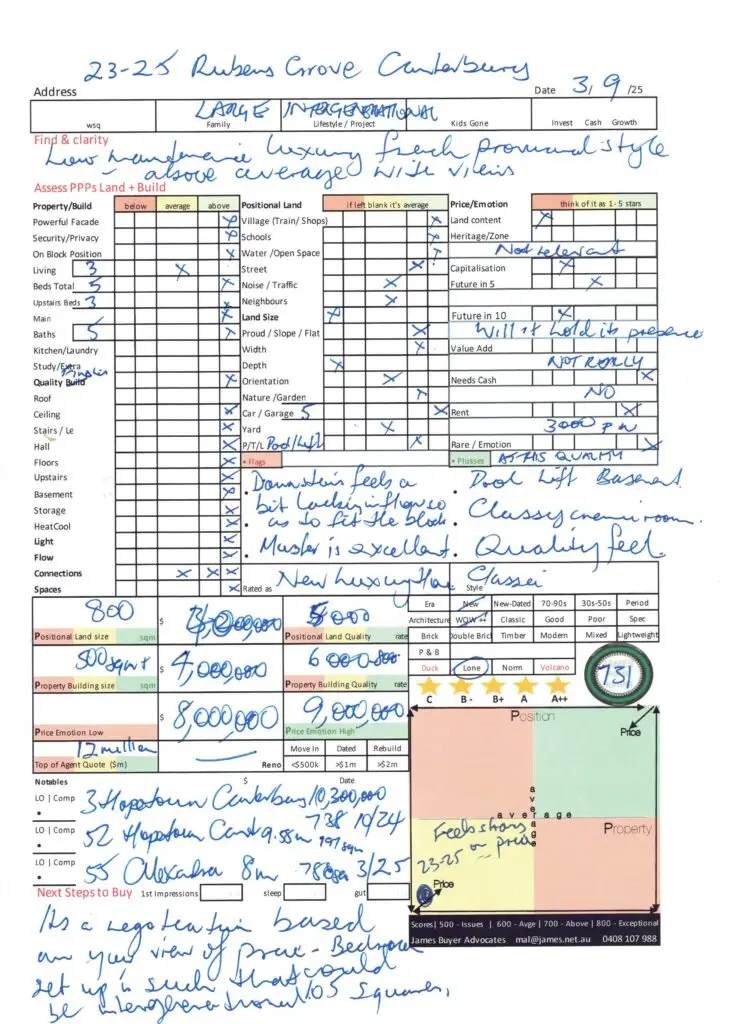 23-25 Rubens Grove Canterbury
Address Date 3/9/25
LARGE INTERGENERATIONAL
wsq Family Lifestyle / Project Kids Gone Invest Cash Growth
Find & clarity
Low luxury french style
- above average with views
Assess PPPs Land + Build
Property/Build below average above Positional Land if left blank it's average Price/Emotion think of it as 1- 5 stars
Powerful Facade Village (Train/ Shops) Land content
Security/Privacy Schools Heritage/Zone
On Block Position Water /Open Space Not relevant
Living 3 Street Capitalisation
Beds Total 5 Noise / Traffic Future in 5
Upstairs Beds 3 Neighbours
Main Land Size Future in 10
Baths 5 Proud / Slope / Flat Will it hold its presence
Kitchen/Laundry Width Value Add
Study/Extra Depth NOT REALLY
Quality Build Orientation Needs Cash
Roof Nature /Garden NO
Ceiling Car / Garage 5 Rent
Stairs / Le Yard 3000 pw
Hall P/T/L Pool/Lift Rare / Emotion
Floors • Flags • Plusses AT THIS QUALITY
Upstairs • Downstairs feels a • Pool Lift Basement
Basement bit lacking in flow so
Storage as to fit the block • Classy room.
HeatCool
Light • Master is excellent • Quality feel.
Flow
Connections New Luxury
Spaces Rated as Style
800 $ 5000 Era New New-Dated 70-90s 30s-50s Period
Positional Land size sqm Positional Land Quality rate Architecture WOW ++ Classic Good Poor Spec
Brick Double Brick Timber Modern Mixed Lightweight
500 sqm $ 4,000,000 6000 P & B
Property Building size sqm Property Building Quality rate Duck Lone Norm Volcano
731
C B - B+ A A++
$ 8,000,000 9,000,000
Price Emotion Low Price Emotion High
12 million Move In Dated Rebuild
Top of Agent Quote ($m) Reno <$500k >$1m >$2m
Position
Price
average
average
Property
Feels strong
23-25 on price
Price
Notables $ Date
LO | Comp 3 Hopetoun Canterbury 10,300,000
• 738 10/24
LO | Comp 52 Hopetoun Cant 9.55m
•
LO | Comp 55 Alexandra 8m 3/25
•
Next Steps to Buy 1st Impressions sleep gut
Scores| 500 - Issues | 600 - Avge | 700 - Above | 800 - Exceptional
James Buyer Advocates mal@james.net.au 0408 107 988
Its a negotiation based
on your view of price - Bedroom
set up is such that could
be intergenerational 105 squares.